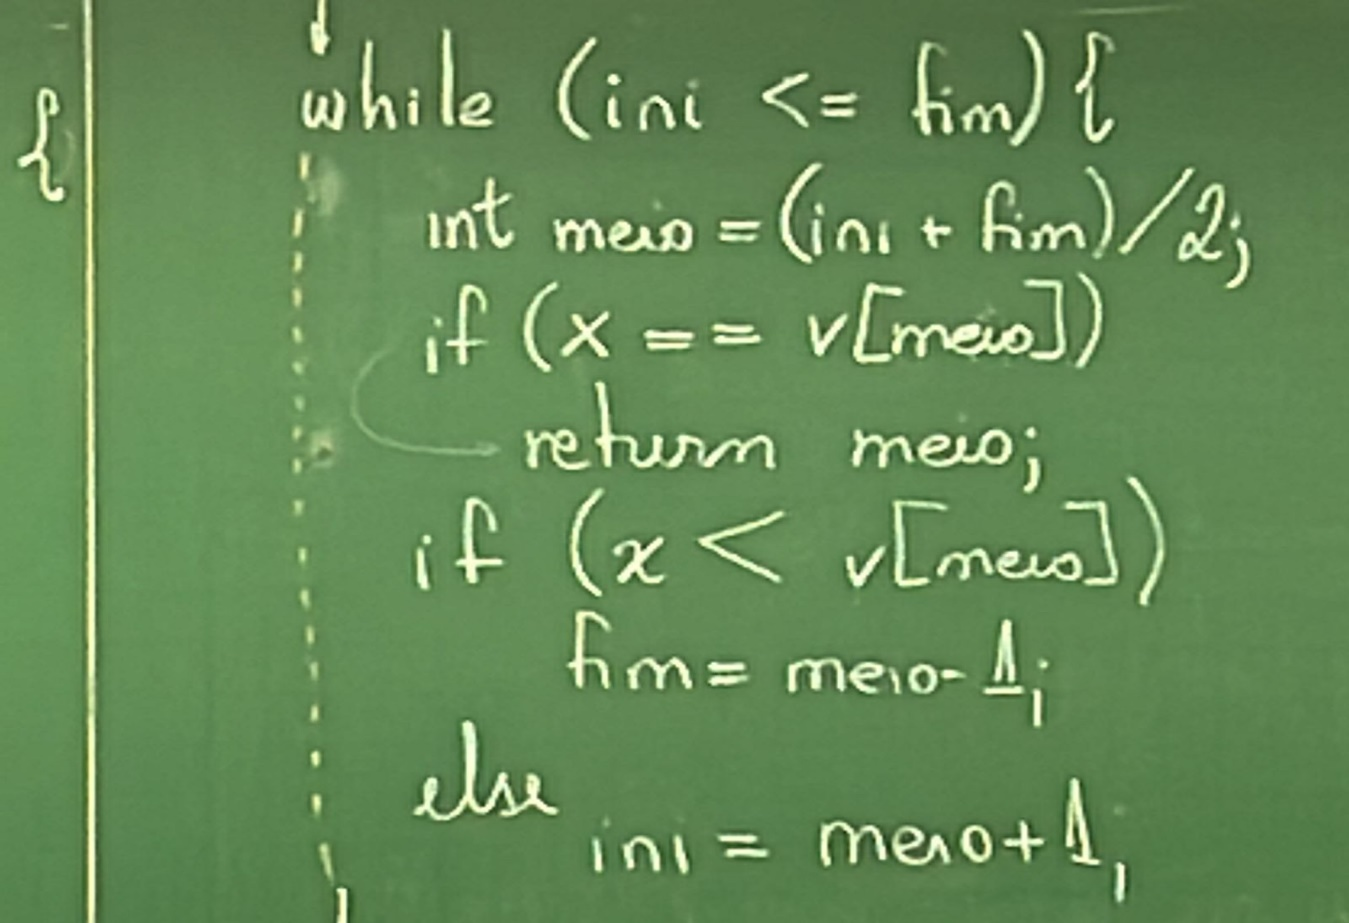 {
while (ini <= fim) {
int meio = (ini + fim)/2;
if (x == v[meio])
return meio;
if (x < v[meio])
fim = meio - 1;
else
ini = meio + 1;
}